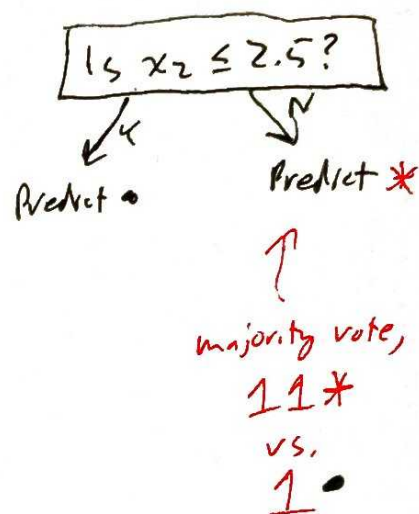 Is x₂ ≤ 2.5?
Y N
Predict • Predict *
majority vote,
11 *
vs.
1 •